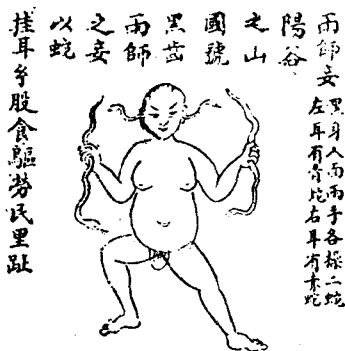 雨師妾
黑身人面兩手各操二蛇
左耳有青蛇右耳有赤蛇
陽谷
之山
國號
黑齒
雨師
之妾
以蛇
挂耳乎股食驅勞民里趾